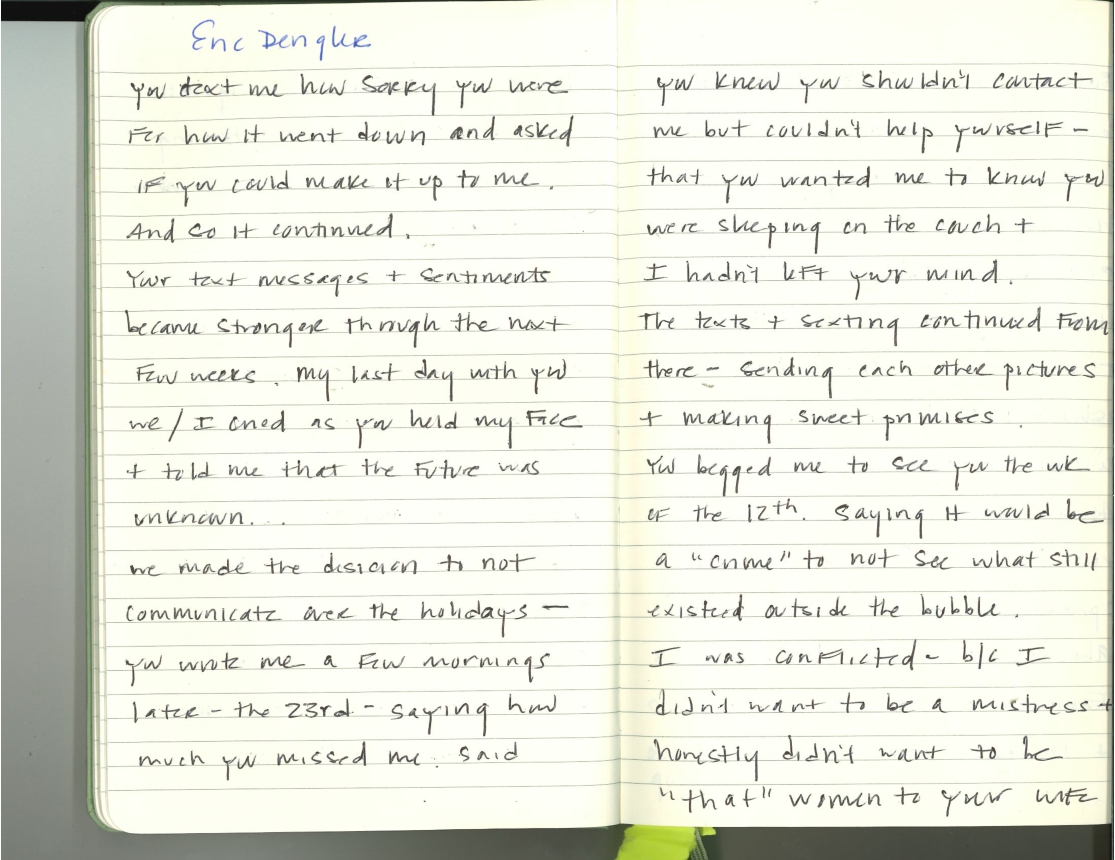 Eric Dengler
you text me how sorry you were
For how it went down and asked
IF you could make it up to me.
And so it continued.
Your text messages + sentiments
became stronger through the next
Few weeks. My last day with you
we / I cried as you held my Face
+ told me that the Future was
unknown...
we made the disicion to not
communicate over the holidays —
you wrote me a Few mornings
later - the 23rd - saying how
much you missed me. Said
you knew you shouldn't contact
me but couldn't help yourself -
that you wanted me to know you
were sleeping on the couch +
I hadn't left your mind.
The texts + sexting continued From
there - sending each other pictures
+ making sweet promises.
You begged me to see you the wk
of the 12th. Saying it would be
a "crime" to not see what still
existeed outside the bubble.
I was conflicted - b/c I
didn't want to be a mistress +
honestly didn't want to be
"that" women to your wife